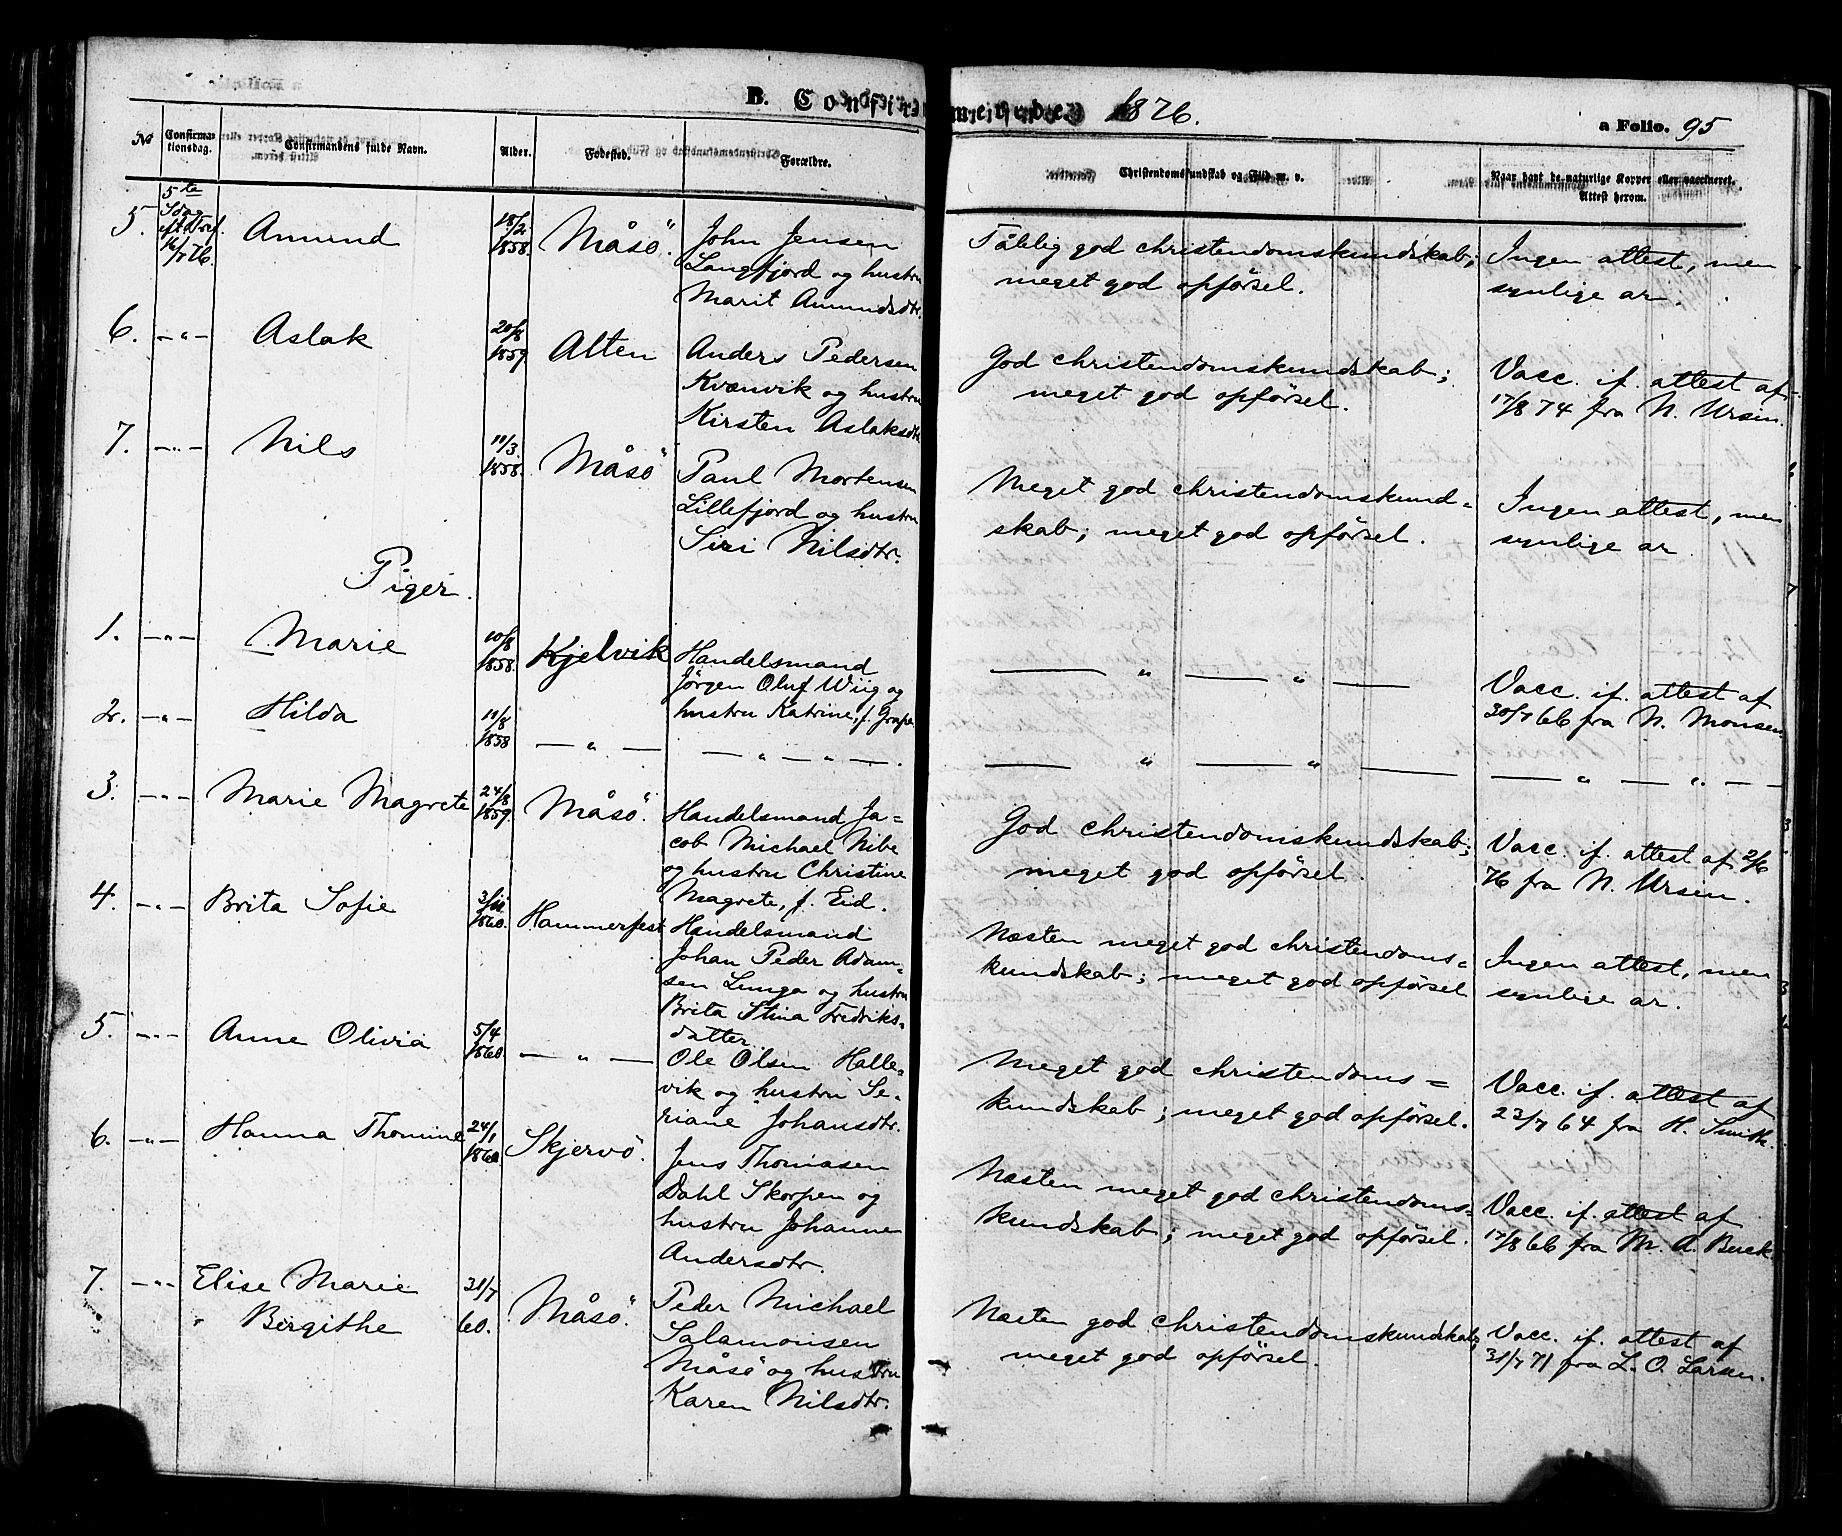 B. Confirmerede 1876.
a Folio. 95
No
Confirmationsdag.
Confirmandens fulde Navn.
Alder.
Fødested.
Forældre.
Christendomskundskab og Flid m. v.
Naar havt de naturlige Kopper eller vaccineret. Attest herom.
5. 5te Sdag eft. Tref. 16/7 76. Amund 18/2 1858. Måsö. John Jensen
Langfjord og hustru
Marit Amundsdtr.
Tålelig god christendomskundskab;
meget god opförsel.
Ingen attest, men
synlige ar.
6. — " — Aslak 20/8 1859 Alten Anders Pedersen
Kvænvik og hustru
Kirsten Aslaksdtr
God christendomskundskab;
meget god opförsel.
Vacc. if. attest af
17/8 74 fra N. Ursin.
7. — " — Nils 11/3 1858. Måsö Paul Mortensen
Lillefjord og hustru
Siri Nilsdtr.
Meget god christendomskund=
skab; meget god opförsel.
Ingen attest, men
synlige ar.
Piger.
1. — " — Marie 10/8 1858. Kjelvik Handelsmand
Jörgen Oluf Wiig og
hustru Katrine, f.
— " — " —
Vacc. if. attest af
30/7 66 fra N. Monsen.
2. — " — Hilda 11/8 1858 — " — — " — " —.
— " — " —
— " — " —
3. — " — Marie Magrete 24/8 1859. Måsö. Handelsmand Ja=
cob Michael Nibe
og hustru Christine
Magrete, f. Eid.
God christendomskundskab;
meget god opförsel.
Vacc. if. attest af 2/6
76 fra N. Ursin.
4. — " — Brita Sofie 1860. Hammerfest Handelsmand
Johan Peder Adam=
sen Lunga og hustru
Brita Stina Fredriks=
datter
Næsten meget god christendoms=
kundskab; meget god opförsel
Ingen attest, men
synlige ar.
5. — " — Anne Olivia 5/4 1860. — " — Ole Olsen Halle=
vik og hustru Se=
riane Johansdtr.
Meget god christendoms=
kundskab; meget god opförsel.
Vacc. if. attest af
23/7 64 fra H. Smith.
6. — " — Hanna Thomine 24/1 1860. Skjervö. Jens Thomasen
Dahl Skorpen og
hustru Johanne
Andersdtr.
Næsten meget god christendoms=
kundskab; meget god opförsel.
Vacc. if. attest af
17/8 66 fra M. A. Buck
7. — " — Elise Marie
Birgithe 31/7 60. Måsö. Peder Michael
Salamonsen
Måsö og hustru
Karen Nilsdtr.
Næsten god christendomskundskab;
meget god opförsel.
Vacc. if. attest af
31/7 71 fra L. O. Larsen.